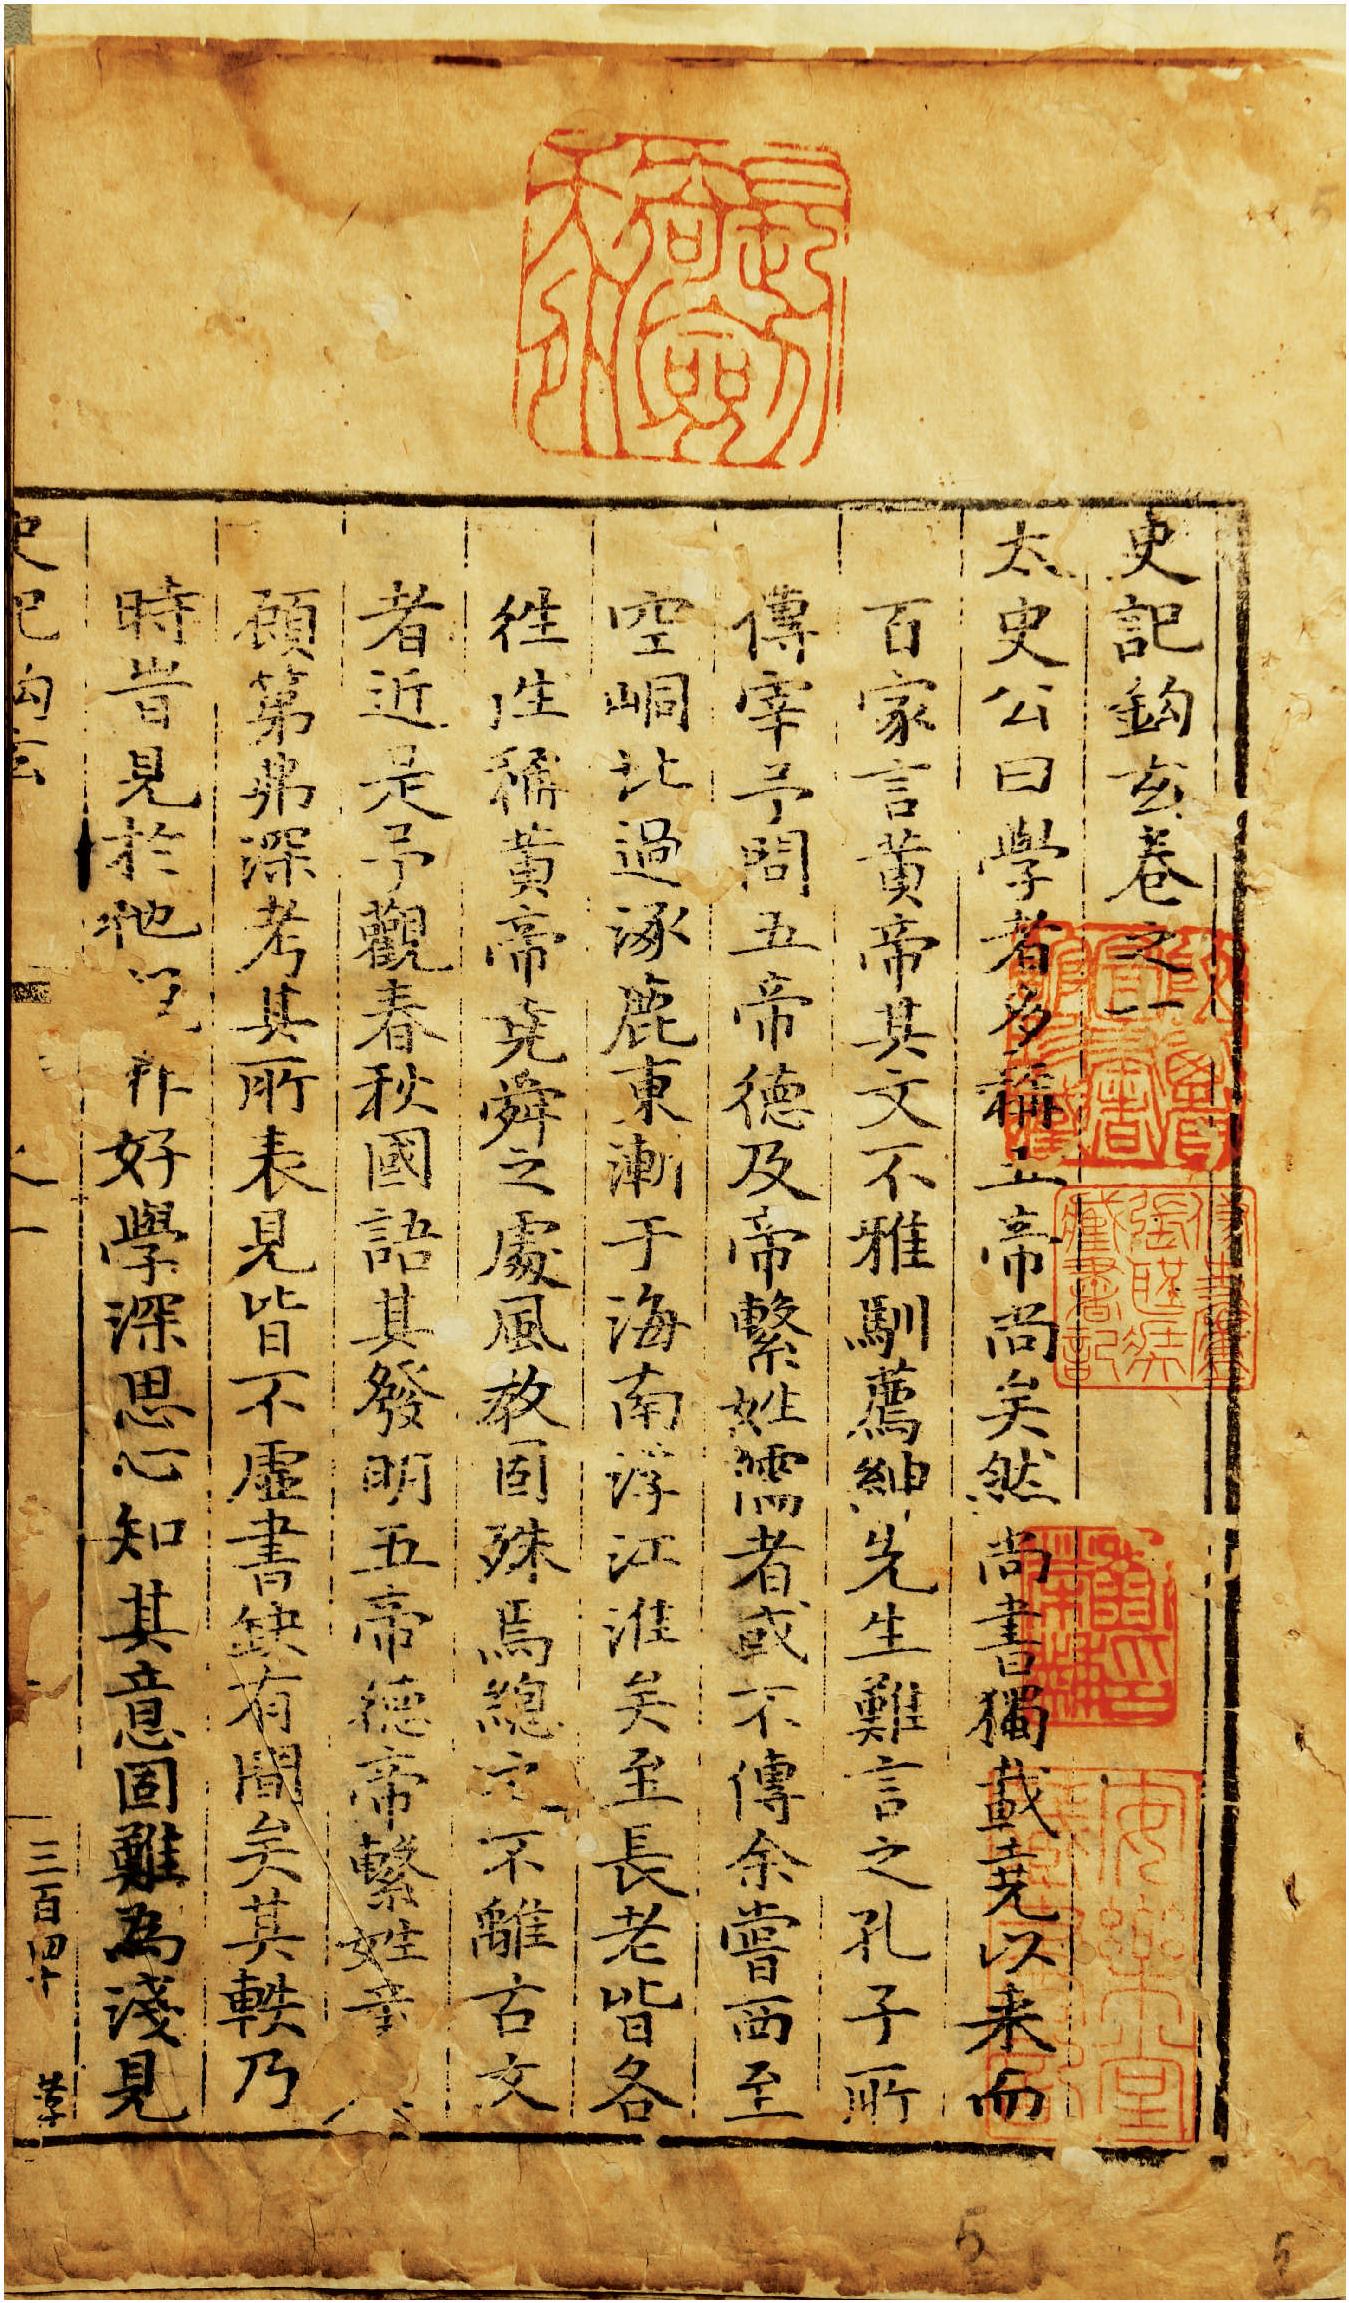 史記鈎玄卷之一
太史公曰學者多稱五帝尚矣然尚書獨載堯以来而
百家言黄帝其文不雅馴薦紳先生難言之孔子所
傳宰予問五帝德及帝繫姓儒者或不傳余嘗西至
空峒北過涿鹿東漸于海南浮江淮矣至長老皆各
徃徃稱黄帝堯舜之處風教固殊焉緫之不離古文
者近是予觀春秋國語其發明五帝德帝繫姓章
顧第弗深考其所表見皆不虚書缺有間矣其軼乃
時旹見於他說非好學深思心知其意固難為淺見
史記鈎玄
之一
三百四十
安樂堂
藏書記